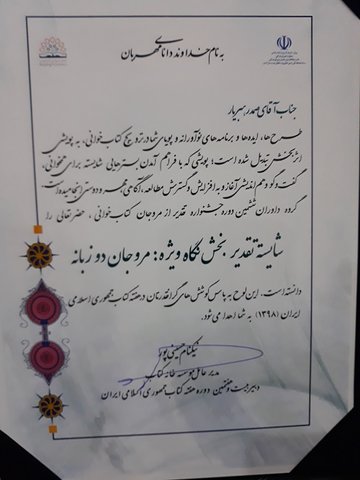 به نام خداوند دانای مهربان
جناب آقای صمد رهبریار
طرح‌ها، ایده‌ها و برنامه‌های نوآورانه و پویای شما در ترویج کتاب‌خوانی، به پویشی
اثربخش تبدیل شده است؛ پویشی که با فراهم آمدن بسترهایی شایسته برای همخوانی،
گفت‌وگو و هم‌اندیشی آغاز و به افزایش و گسترش مطالعه، آگاهی، و دوستی انجامیده است.
گروه داوران ششمین دوره جشنواره تقدیر از مروجان کتاب‌خوانی، حضرتعالی را
شایسته تقدیر بخش نگاه ویژه: مروجان دو زبانه
دانسته است. این لوح به پاس کوشش‌های گرانقدرتان در هفته کتاب جمهوری اسلامی
ایران (۱۳۹۸) به شما اهدا می‌شود.
نیکنام حسینی‌پور
مدیر عامل موسسه خانه کتاب
دبیر بیست و هفتمین دوره هفته کتاب جمهوری اسلامی ایران